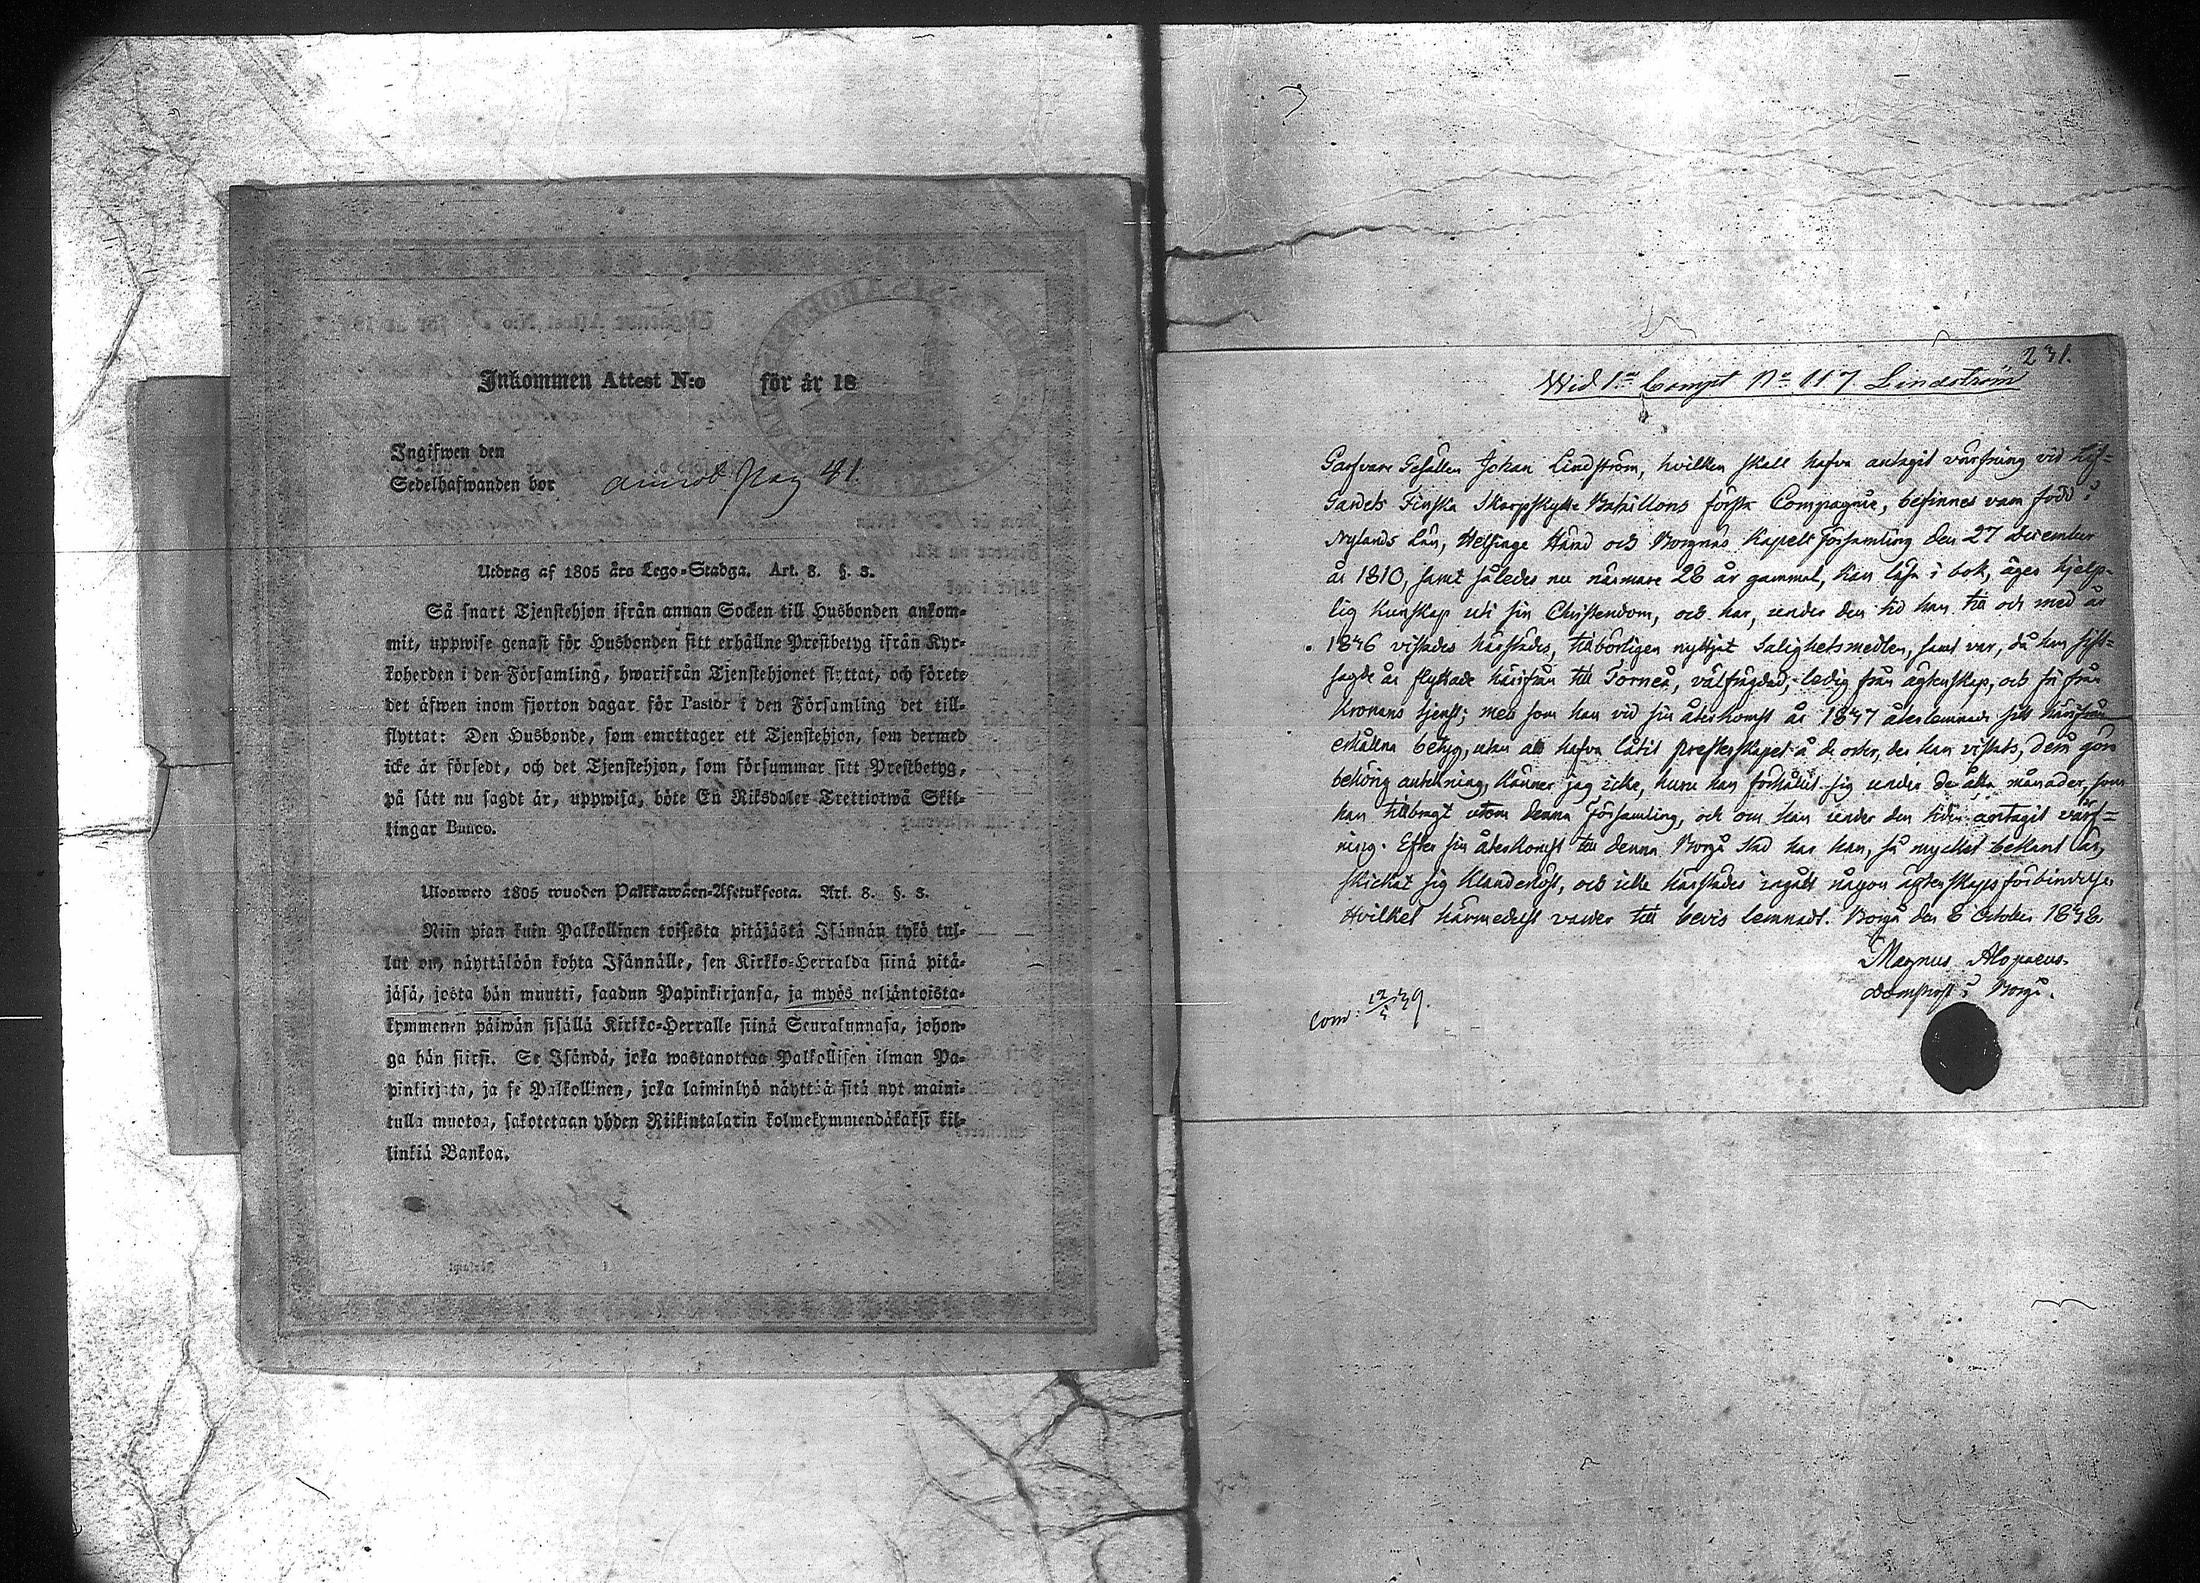 Inkommen Attest N:o för år 18
Ingifwen den
Sedelhafwanden bor annot. Pag 41.
Utdrag af 1805 års Lego-Stadga. Art. 8. §. 3.
Så snart Tjenstehjon ifrån annan Socken till Husbonden ankom-
mit, uppwise genast för Husbonden sitt erhållne Prestbetyg ifrån Kyr-
koherden i den Församling, hwarifrån Tjenstehjonet flyttat, och förete
det äfwen inom fjorton dagar för Pastor i den Församling det till-
flyttat: Den Husbonde, som emottager ett Tjenstehjon, som dermed
icke är försedt, och det Tjenstehjon, som försummar sitt Prestbetyg,
på sätt nu sagdt är, uppwisa, böte En Riksdaler Trettiotwå Skil-
lingar Banco.
Ulosweto 1805 wuoden Palkkawäen-Asetuksesta. Art. 8. §. 3.
Niin pian kuin Palkollinen toisesta pitäjästä Isännän tykö tul-
lut on, näyttälöön kohta Isännälle, sen Kirkko-Herralda siinä pitä-
jäsä, josta hän muutti, saadun Papinkirjansa, ja myös neljäntoista-
kymmenen päiwän sisällä Kirkko-Herralle siinä Seurakunnasa, johon-
ga hän siirsi. Se Isändä, joka wastanottaa Palkollisen ilman Pa-
pinkirjata, ja se Palkollinen, joka laiminlyö näyttää sitä nyt maini-
tulla muotoa, sakotetaan yhden Riikintalarin kolmekymmendäkaksi kil-
linkiä Bankoa.
231.
Wid 1:a Compt No 117 Lindström
Garfvare Gesällen Johan Lindström, hvilken skall hafva antagit värfning vid Lif-
Gardets Finska Skarpskytte Bataillons första Compagnie, befinnes vara född i
Nylands Län, Helsinge Härad och Borgnäs Kapells Församling den 27 december
år 1810, samt således nu närmare 28 år gammal, kan läsa i bok, äger hjelp-
lig kunskap uti sin Christendom, och har, under den tid han till och med år
1836 vistades härstädes, tillbörligen nyttjat Salighetsmedlen, samt var, då han sist-
sagde år flyttade härifrån till Torneå, välfrägdad, ledig från ägtenskap, och fri från
Kronans tjenst; men som han vid sin återkomst år 1837 återlemnade sitt härifrån
erhållna betyg, utan att hafva låtit presterskapet å de orter, der han vistats, derå göra
behörig anteckning, känner jag icke, huru han förhållit sig under de åtta månader, som
han tillbragt utom denna Församling, och om han under den tiden antagit värf-
ning. Efter sin återkomst till denna Borgå stad har han, så mycket bekant är,
skickat sig klanderlöst, och icke härstädes ingått någon ägtenskapsförbindelse.
Hvilket härmedelst varder till bevis lemnadt. Borgå den 8 October 1838.
Magnus Alopaeus.
Domprost i Borgå.